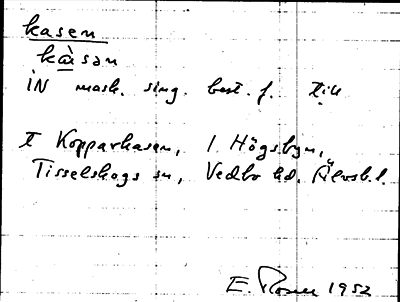 kasen
kàsən
iN mask. sing. best. f. till
t Kopparkasen, 1 Högsbyn,
Tisselskogs sn, Vedbo hd. Älvsb. l.
E. Rosell 1952